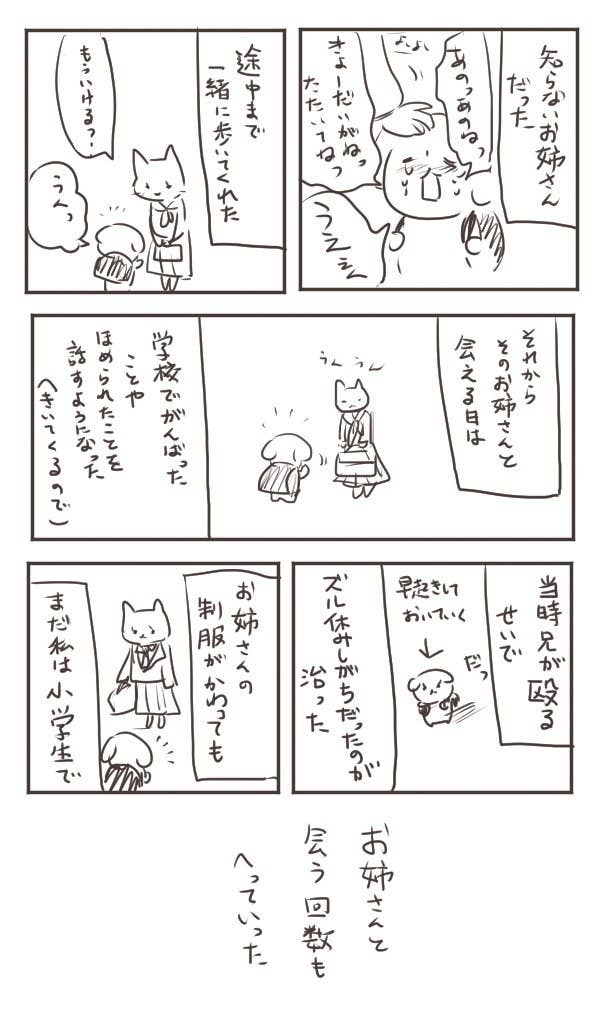 知らないお姉さん
だった
よしよし
あのっあのねっ
きょーだいがねっ
たたいてねっ
うええん
途中まで
一緒に歩いてくれた
もういけるっ?
うんっ
それから
そのお姉さんと
会える日は
うん うん
学校でがんばった
ことや
ほめられたことを
話すようになった
(きいてくるので)
当時兄が殴る
せいで
早起きして
おいていく
だっ
ズル休みしがちだったのが
治った
お姉さんの
制服がかわっても
まだ私は小学生で
お姉さんと
会う回数も
へっていった